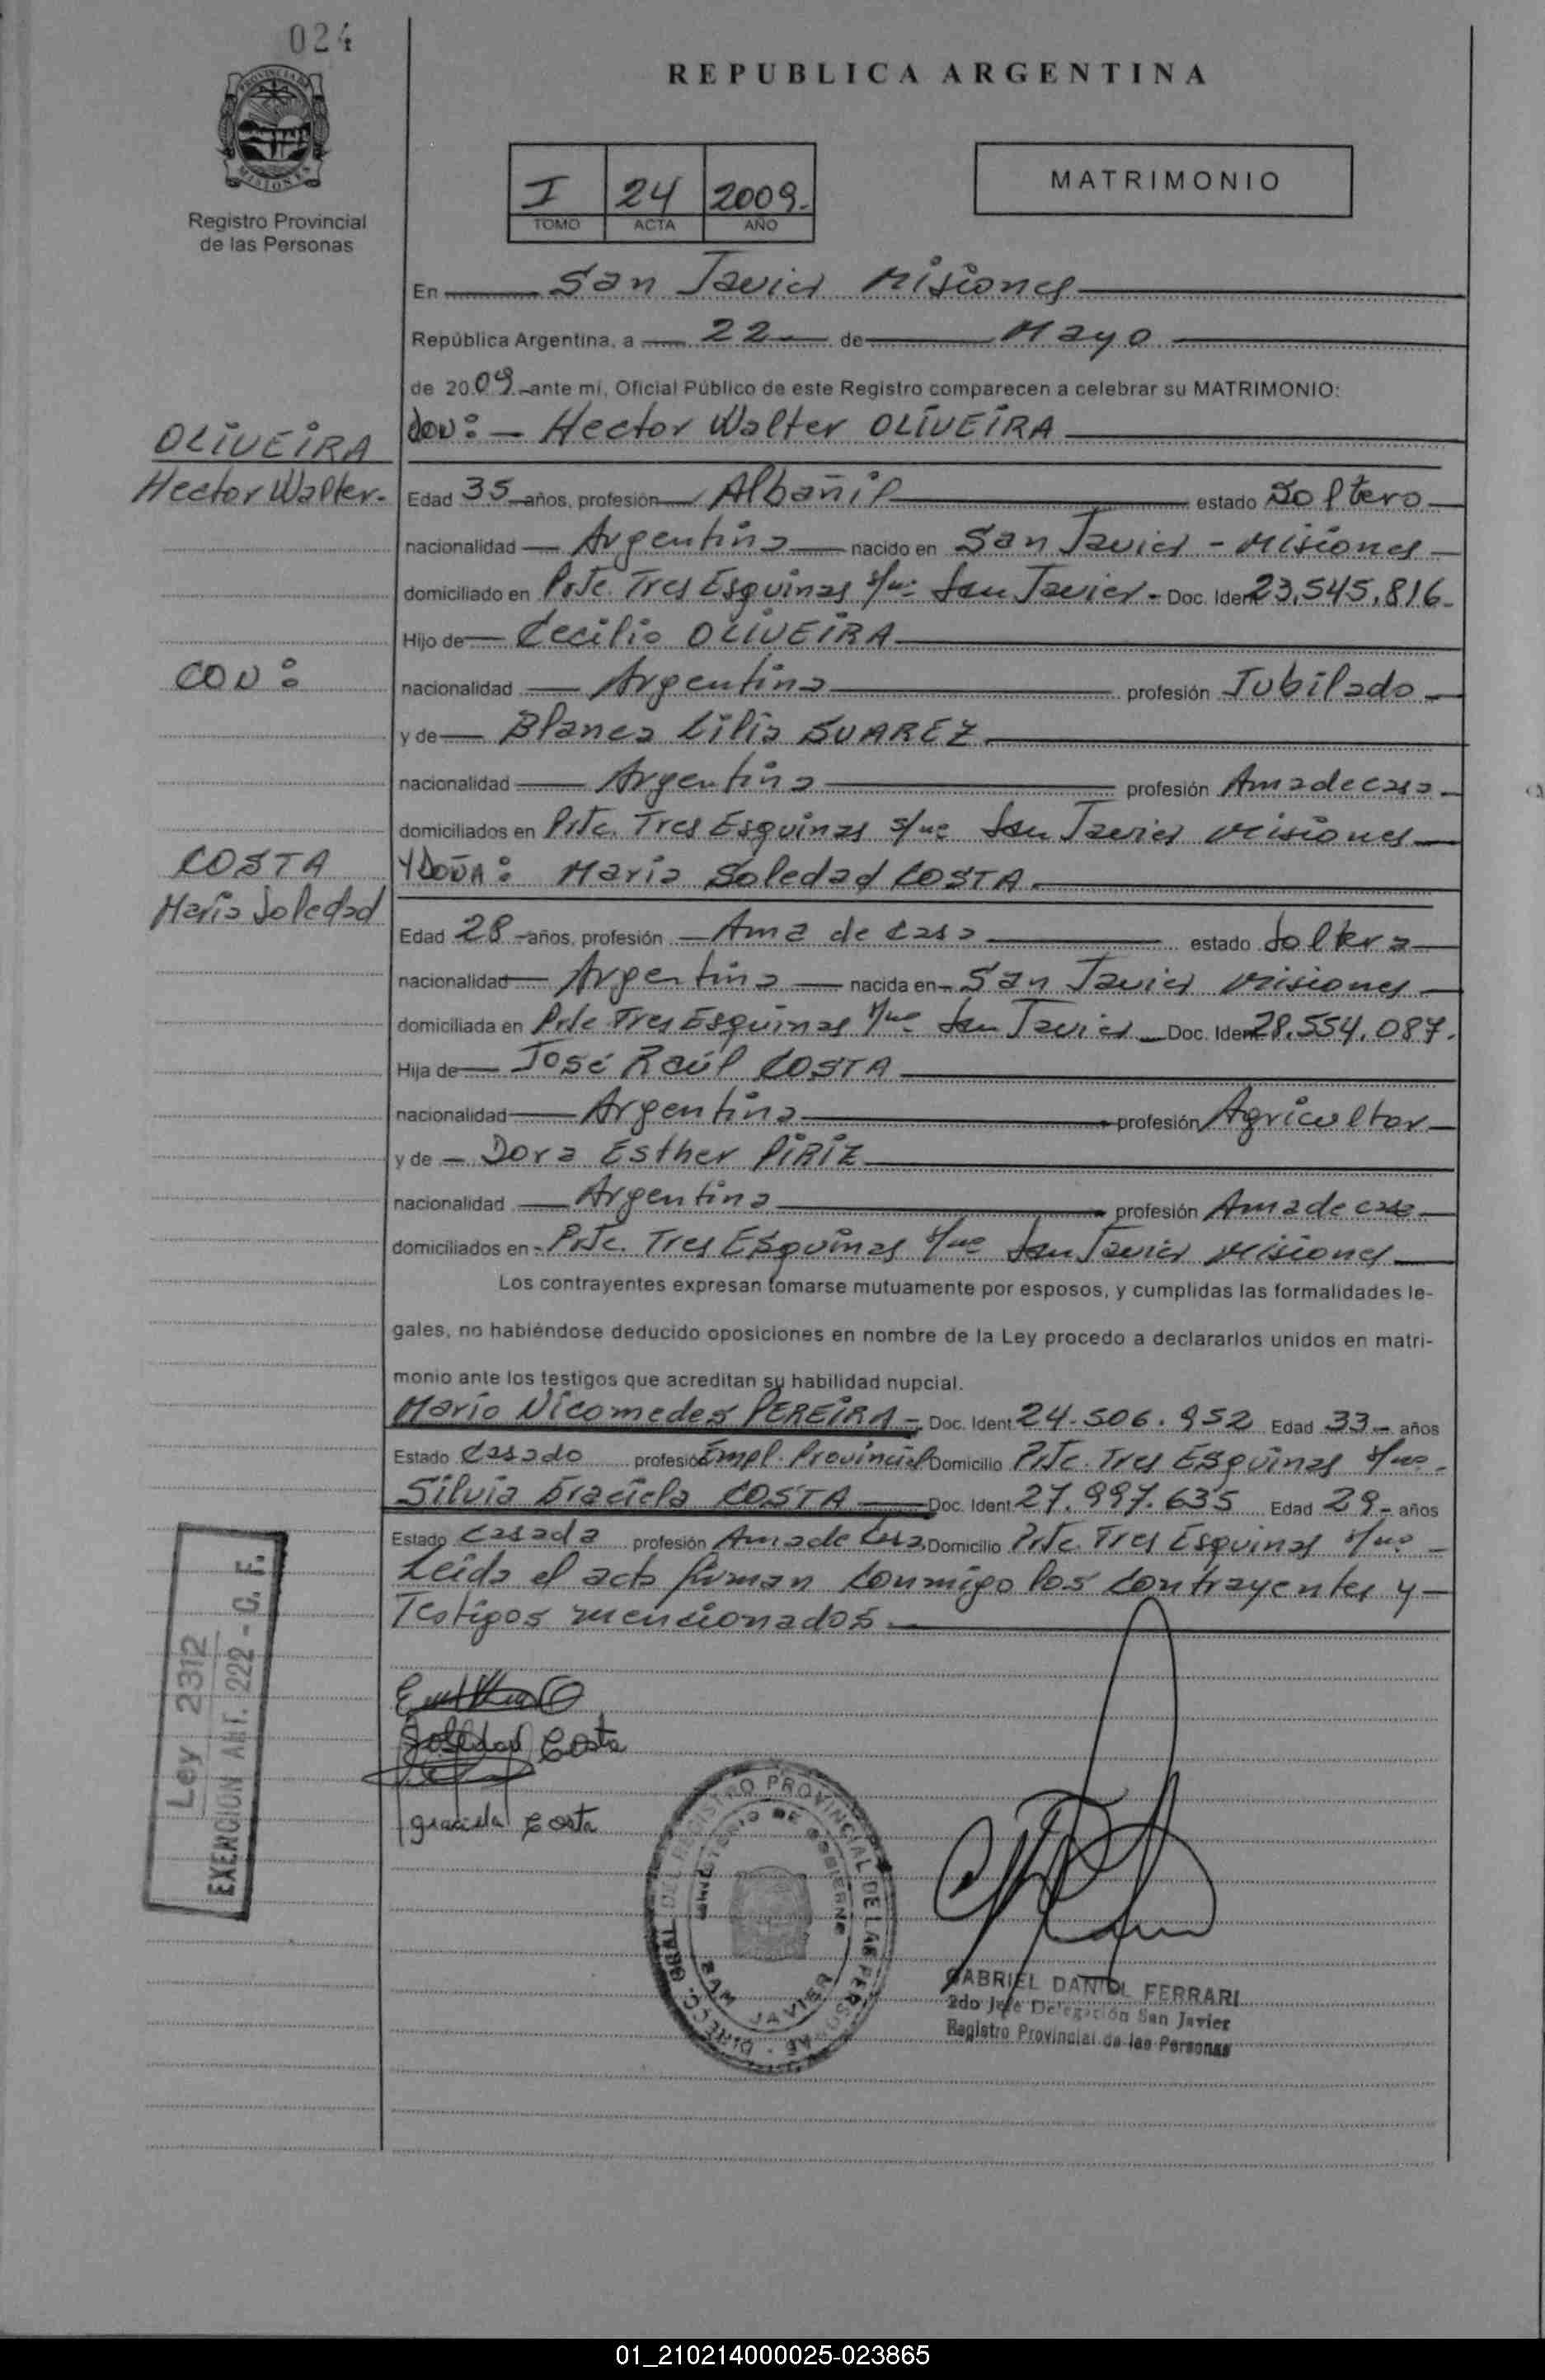 024
PROVINCIA DE
MISIONES
Registro Provincial
de las Personas
REPUBLICA ARGENTINA
I 24 2009.-
TOMO ACTA AÑO
MATRIMONIO
En San Javier Misiones
República Argentina, a 22 de Mayo
de 2009.- ante mi, Oficial Público de este Registro comparecen a celebrar su MATRIMONIO:
OLIVEIRA
DON: - Hector Walter OLIVEIRA
Hector Walter.-
Edad 35 años, profesión Albañil estado Soltero
nacionalidad Argentina nacido en San Javier - Misiones
domiciliado en Pste. Tres Esquinas s/nº San Javier - Doc. Ident. 23.545.816.-
Hijo de Cecilio OLIVEIRA
CON:
nacionalidad Argentina profesión Jubilado
y de Blanca Lilia SUAREZ
nacionalidad Argentina profesión Ama de casa.-
domiciliados en Pste. Tres Esquinas s/nº San Javier Misiones
COSTA
Y DOÑA: Maria Soledad COSTA.
Maria Soledad
Edad 28 -años, profesión Ama de casa estado Soltera
nacionalidad Argentina nacida en San Javier Misiones
domiciliada en Pste Tres Esquinas s/nº San Javier Doc. Ident. 28.554.087.
Hija de José Raúl COSTA
nacionalidad Argentina profesión Agricultor
y de - Dora Esther PIRIZ
nacionalidad Argentina profesión Ama de casa
domiciliados en - Pste. Tres Esquinas s/nº San Javier Misiones
Los contrayentes expresan tomarse mutuamente por esposos, y cumplidas las formalidades le-
gales, no habiéndose deducido oposiciones en nombre de la Ley procedo a declararlos unidos en matri-
monio ante los testigos que acreditan su habilidad nupcial.
Mario Nicomedes PEREIRA - Doc. Ident. 24.506.952 Edad 33 años
Estado Casado profesión Empl. Provincial Domicilio Pste. Tres Esquinas s/nº.-
Silvia Graciela COSTA Doc. Ident. 27.997.635 Edad 29- años
Estado Casada profesión Ama de Casa Domicilio Pste. Tres Esquinas s/nº -
Leida el acta firman conmigo los contrayentes y
Testigos mencionados.
Soledad Costa
graciela Costa
Ley 2312
EXENCION ART. 222 - C. F.
DIRECC. GRAL. DEL REGISTRO PROVINCIAL DE LAS PERSONAS
MINISTERIO DE GOBIERNO
SAN JAVIER
GABRIEL DANIEL FERRARI
2do Jefe Delegación San Javier
Registro Provincial de las Personas
01_210214000025-023865